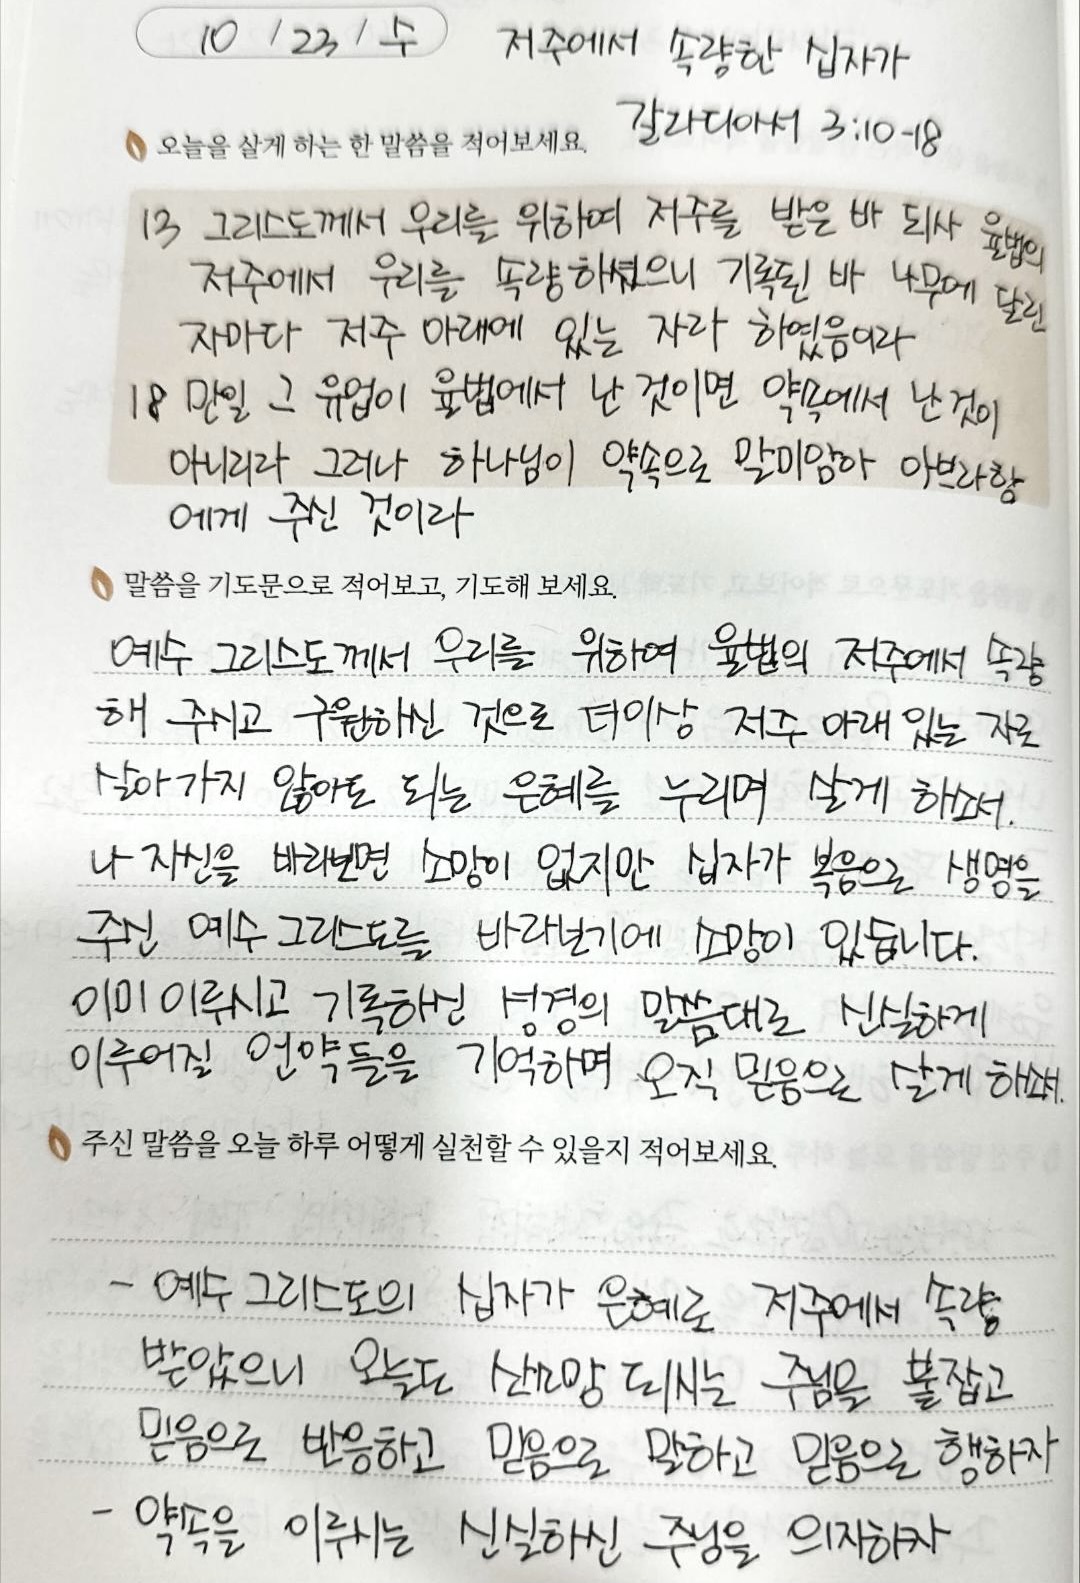 10 / 23 / 수 저주에서 속량한 십자가
갈라디아서 3:10-18
오늘을 살게 하는 한 말씀을 적어보세요.
13 그리스도께서 우리를 위하여 저주를 받은 바 되사 율법의
저주에서 우리를 속량하셨으니 기록된 바 나무에 달린
자마다 저주 아래에 있는 자라 하였음이라
18 만일 그 유업이 율법에서 난 것이면 약속에서 난 것이
아니리라 그러나 하나님이 약속으로 말미암아 아브라함
에게 주신 것이라
말씀을 기도문으로 적어보고, 기도해 보세요.
예수 그리스도께서 우리를 위하여 율법의 저주에서 속량
해 주시고 구원하신 것으로 더이상 저주 아래 있는 자로
살아가지 않아도 되는 은혜를 누리며 살게 하소서.
나 자신을 바라보면 소망이 없지만 십자가 복음으로 생명을
주신 예수 그리스도를 바라보기에 소망이 있습니다.
이미 이루시고 기록하신 성경의 말씀대로 신실하게
이루어질 언약들을 기억하며 오직 믿음으로 살게 하소서.
주신 말씀을 오늘 하루 어떻게 실천할 수 있을지 적어보세요.
- 예수 그리스도의 십자가 은혜로 저주에서 속량
받았으니 오늘도 산소망 되시는 주님을 붙잡고
믿음으로 반응하고 믿음으로 말하고 믿음으로 행하자
- 약속을 이루시는 신실하신 주님을 의지하자